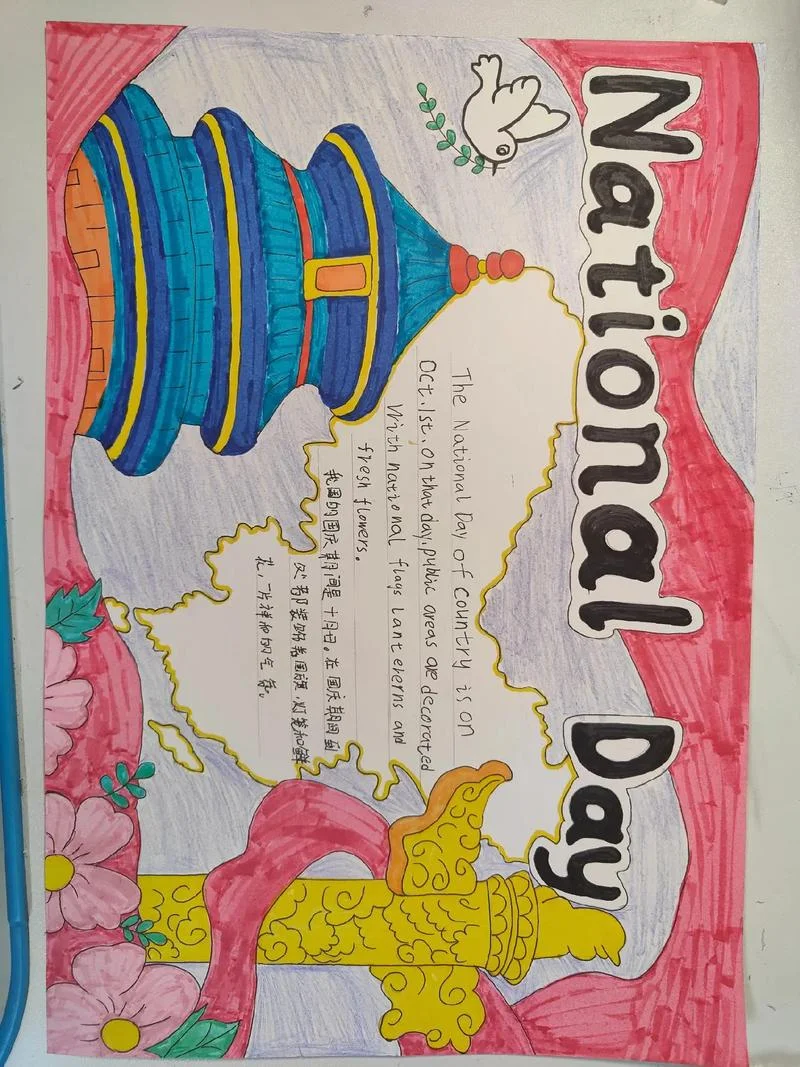 National Day
The National Day of country is on
Oct.1st.on that day,public areas are decorated
With national flags lanterherns and
fresh flowers.
我国的国庆期间是十月1日。在国庆期间到
处都装饰着国旗、灯笼和鲜
花，一片祥和的气氛。